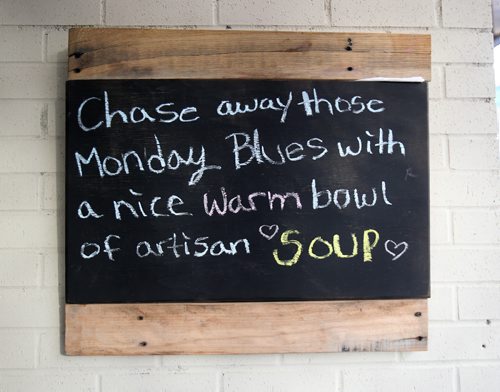 Chase away those
Monday Blues with
a nice warm bowl
of artisan ♡ SOUP ♡